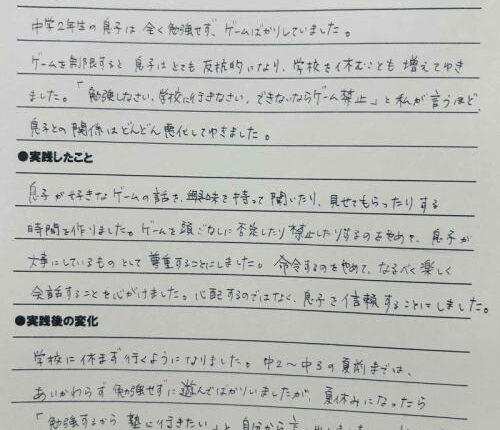 中学2年生の息子は全く勉強せず、ゲームばかりしていました。
ゲームを制限すると息子はとても反抗的になり、学校を休むことも増えてゆき
ました。「勉強しなさい、学校に行きなさい、できないならゲーム禁止」と私が言うほど、
息子との関係はどんどん悪化してゆきました。
●実践したこと
息子が好きなゲームの話を、興味を持って聞いたり、見せてもらったりする
時間を作りました。ゲームを頭ごなしに否定したり禁止したりするのをやめて、息子が
大事にしているものとして尊重することにしました。命令するのをやめて、なるべく楽しく
会話することを心がけました。心配するのではなく、息子を信頼することにしました。
●実践後の変化
学校に休まず行くようになりました。中2〜中3の夏前までは、
あいかわらず勉強せずに遊んでばかりいましたが、夏休みになったら
「勉強するから塾に行きたい」と自分から言い出しました。